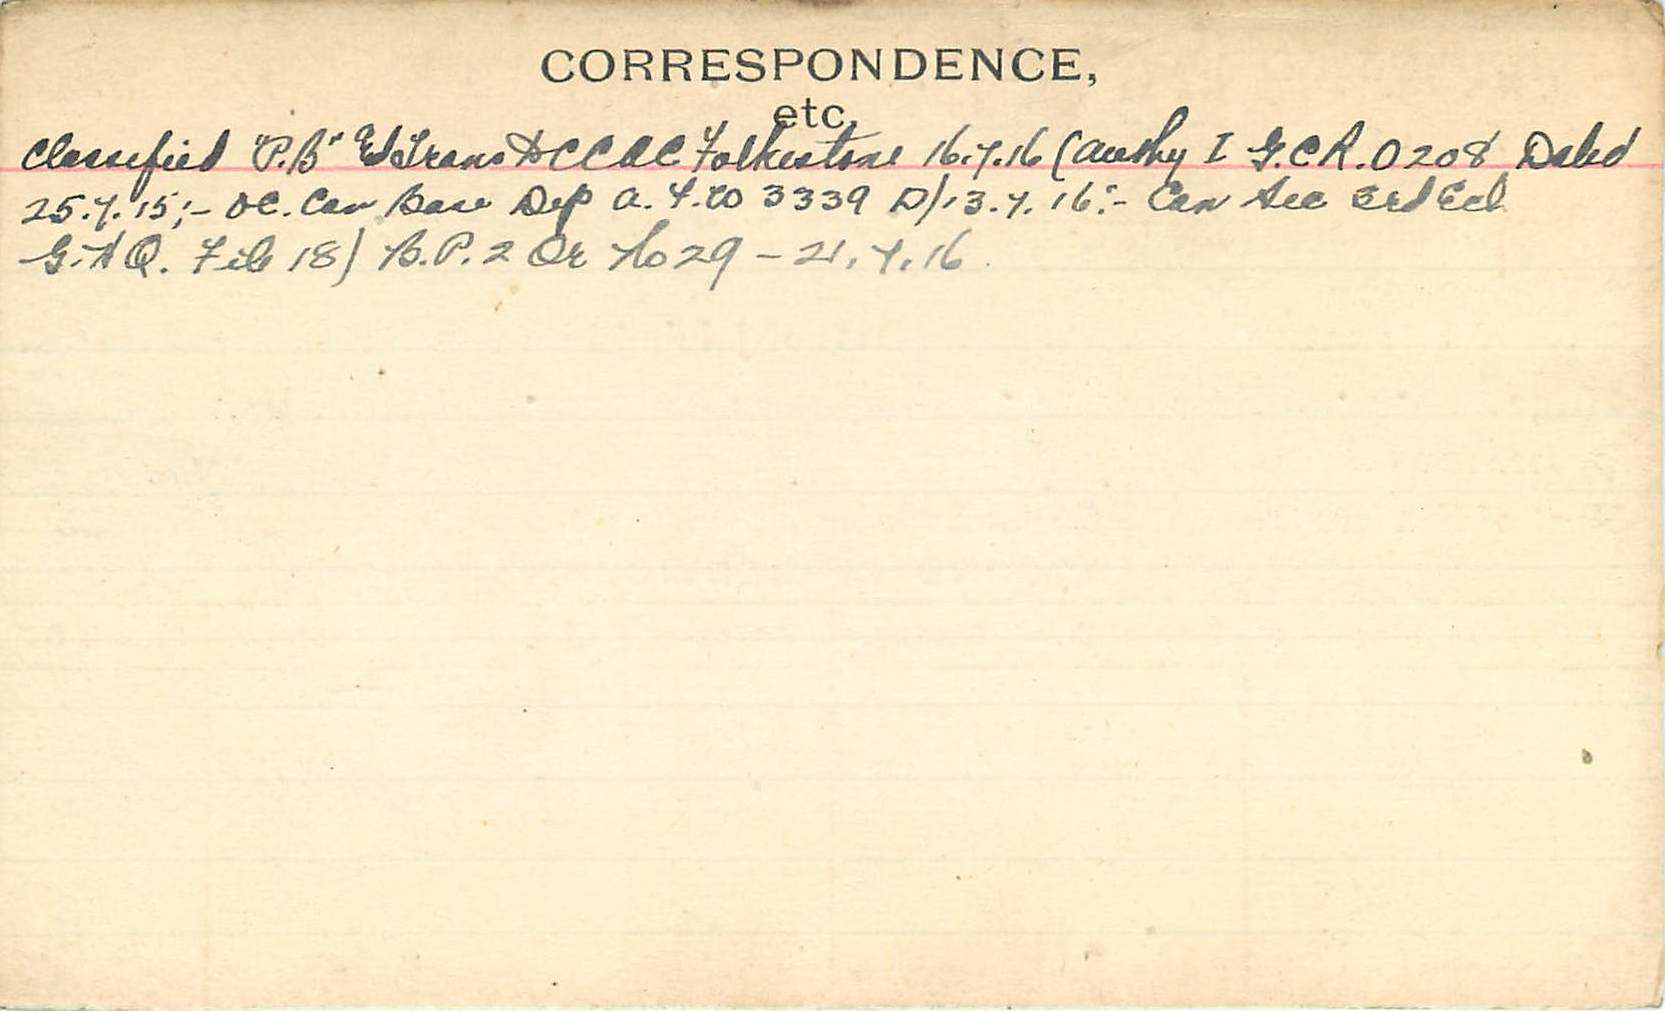 CORRESPONDENCE,
etc.
Classified "P.B" Trans to CCAC Folkestone 16.7.16 (Authy I G.C.R.0208 Dated
25.7.15;- OC. Can Base Dep A.F.W 3339 D/13.7.16:- Can Sec 3rd Ech
G.H.Q. File 18) B.P.2 Or No 29 - 21.7.16.